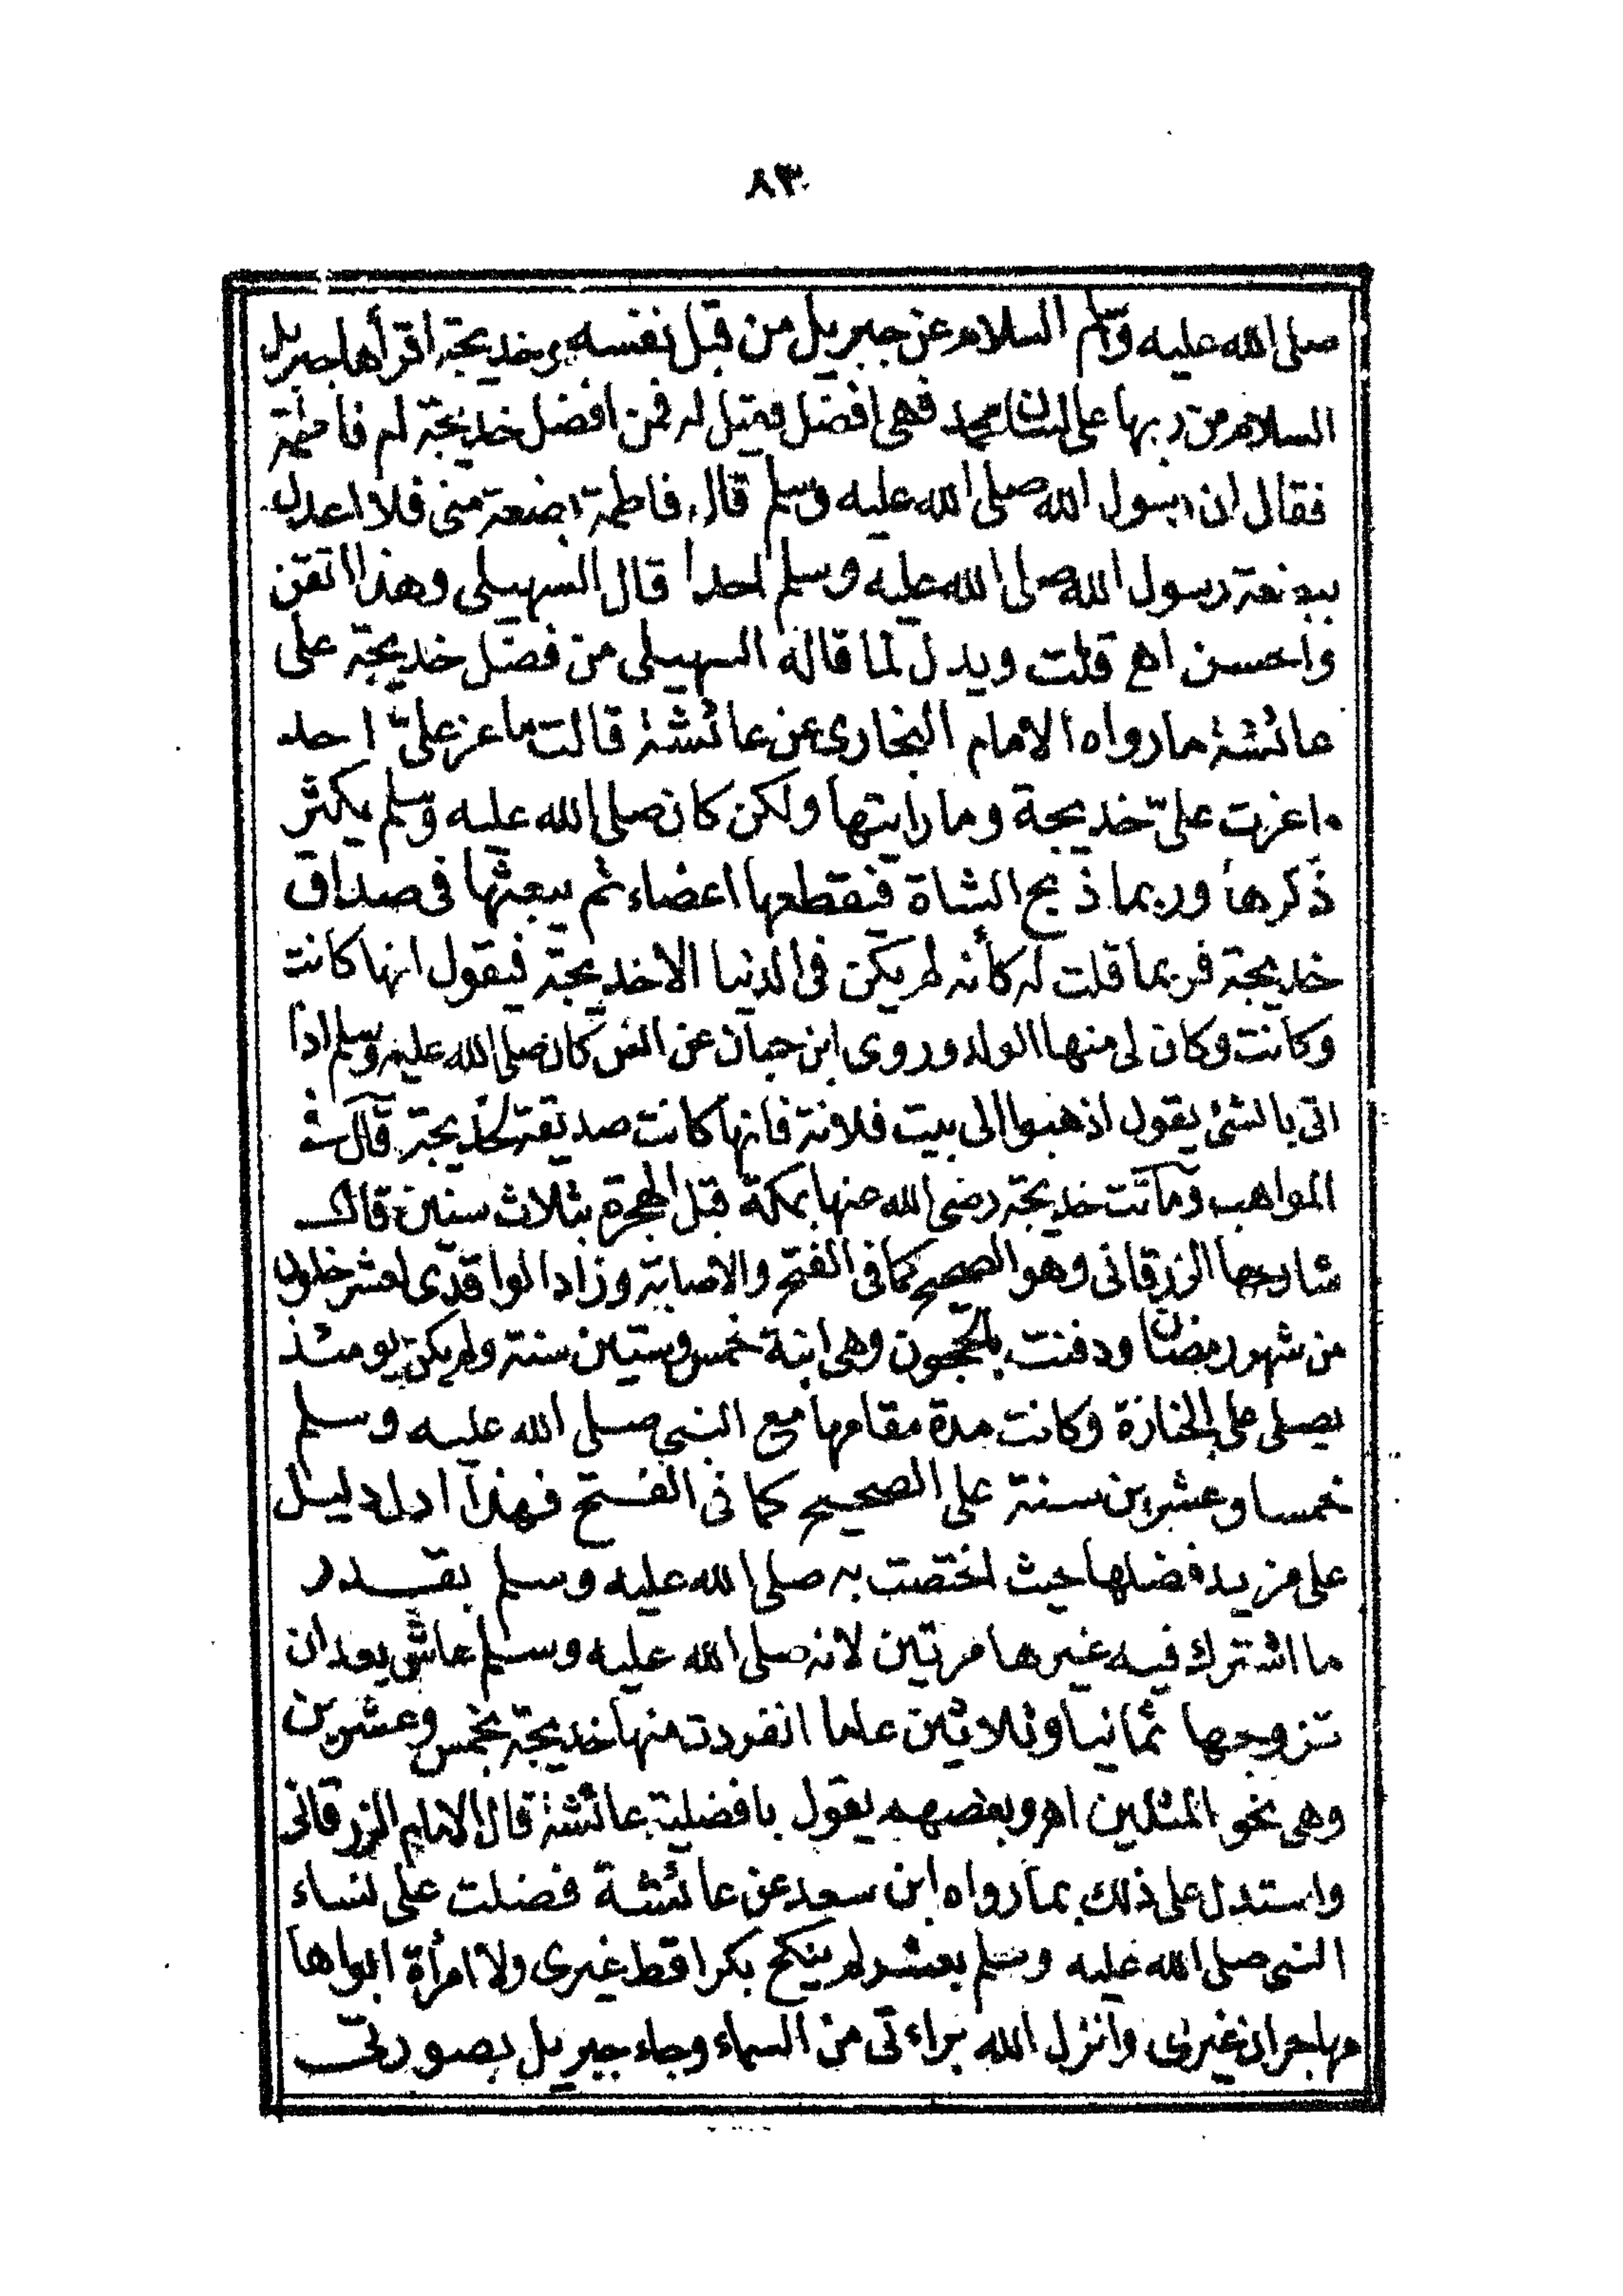 ٨٣
صلى الله عليه وسلم السلام عن جبريل من قبل نفسه وخديجة اقرأها جبريل
السلام من ربها على لسان محمد فهى افضل فقيل له فمن افضل خديجة ام فاطمة
فقال ان رسول الله صلى الله عليه وسلم قال فاطمة بضعة منى فلا اعدل
ببضعة رسول الله صلى الله عليه وسلم احدا قال السهيلى وهذا اتقن
واحسن اهع قلت ويدل لما قاله السهيلى من فضل خديجة على
عائشة ما رواه الامام البخارى عن عائشة قالت ما عز علىّ احد
ما غرت علىّ خديجة وما رأيتها ولكن كان صلى الله عليه وسلم يكثر
ذكرها وربما ذبح الشاة فيقطعها اعضاء ثم يبعثها فى صداق
خديجة فربما قلت له كأنه لم يكن فى الدنيا الا خديجة فيقول انها كانت
وكانت وكان لى منها الولد وروى ابن حبان عن انس كان صلى الله عليه وسلم اذا
اتى بالشئ يقول اذهبوا الى بيت فلانة فانها كانت صديقة لخديجة قال فى
المواهب وماتت خديجة رضى الله عنها بمكة قبل الهجرة بثلاث سنين قال
شارحها الزرقانى وهو الصحيح كما فى الفتح والاصابة وزاد الواقدى لعشر خلون
من شهر رمضان ودفنت بالحجون وهى ابنة خمس وستين سنة ولم يكن يومئذ
يصلى على الجنازة وكانت مدة مقامها مع النبى صلى الله عليه وسلم
خمسا وعشرين سنة على الصحيح كما فى الفتح فهذا ادل دليل
على مزيد فضلها حيث اختصت به صلى الله عليه وسلم بقدر
ما اشترك فيه غيرها مرتين لانه صلى الله عليه وسلم عاش بعد ان
تزوجها ثمانيا وثلاثين عاما انفردت منها خديجة بخمس وعشرين
وهى نحو المثلين اهـ وبعضهم يقول بافضلية عائشة قال الامام الزرقانى
واستدل على ذلك بما رواه ابن سعد عن عائشة فضلت على نساء
النبى صلى الله عليه وسلم بعشر لم ينكح بكرا قط غيرى ولا امرأة ابواها
مهاجران غيرى وانزل الله براءتى من السماء وجاء جبريل بصورتى